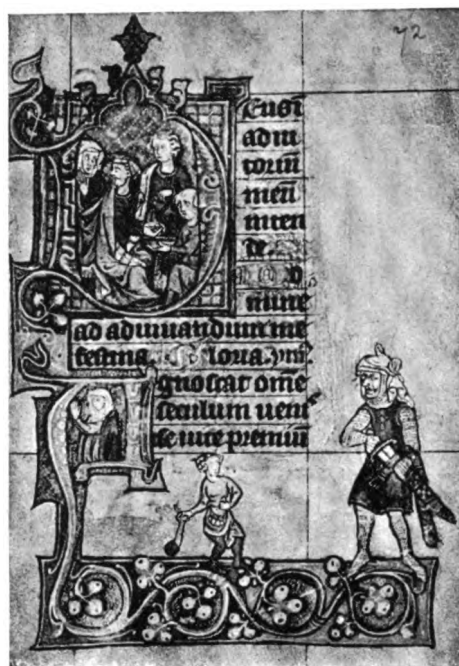 72
Eus i
adiu
toriū
meū
inten
de
mine
ad adiuuandum me
festina Gloria ymꝰ
gnoscat om̄e
seculum ueni
se uite premiū